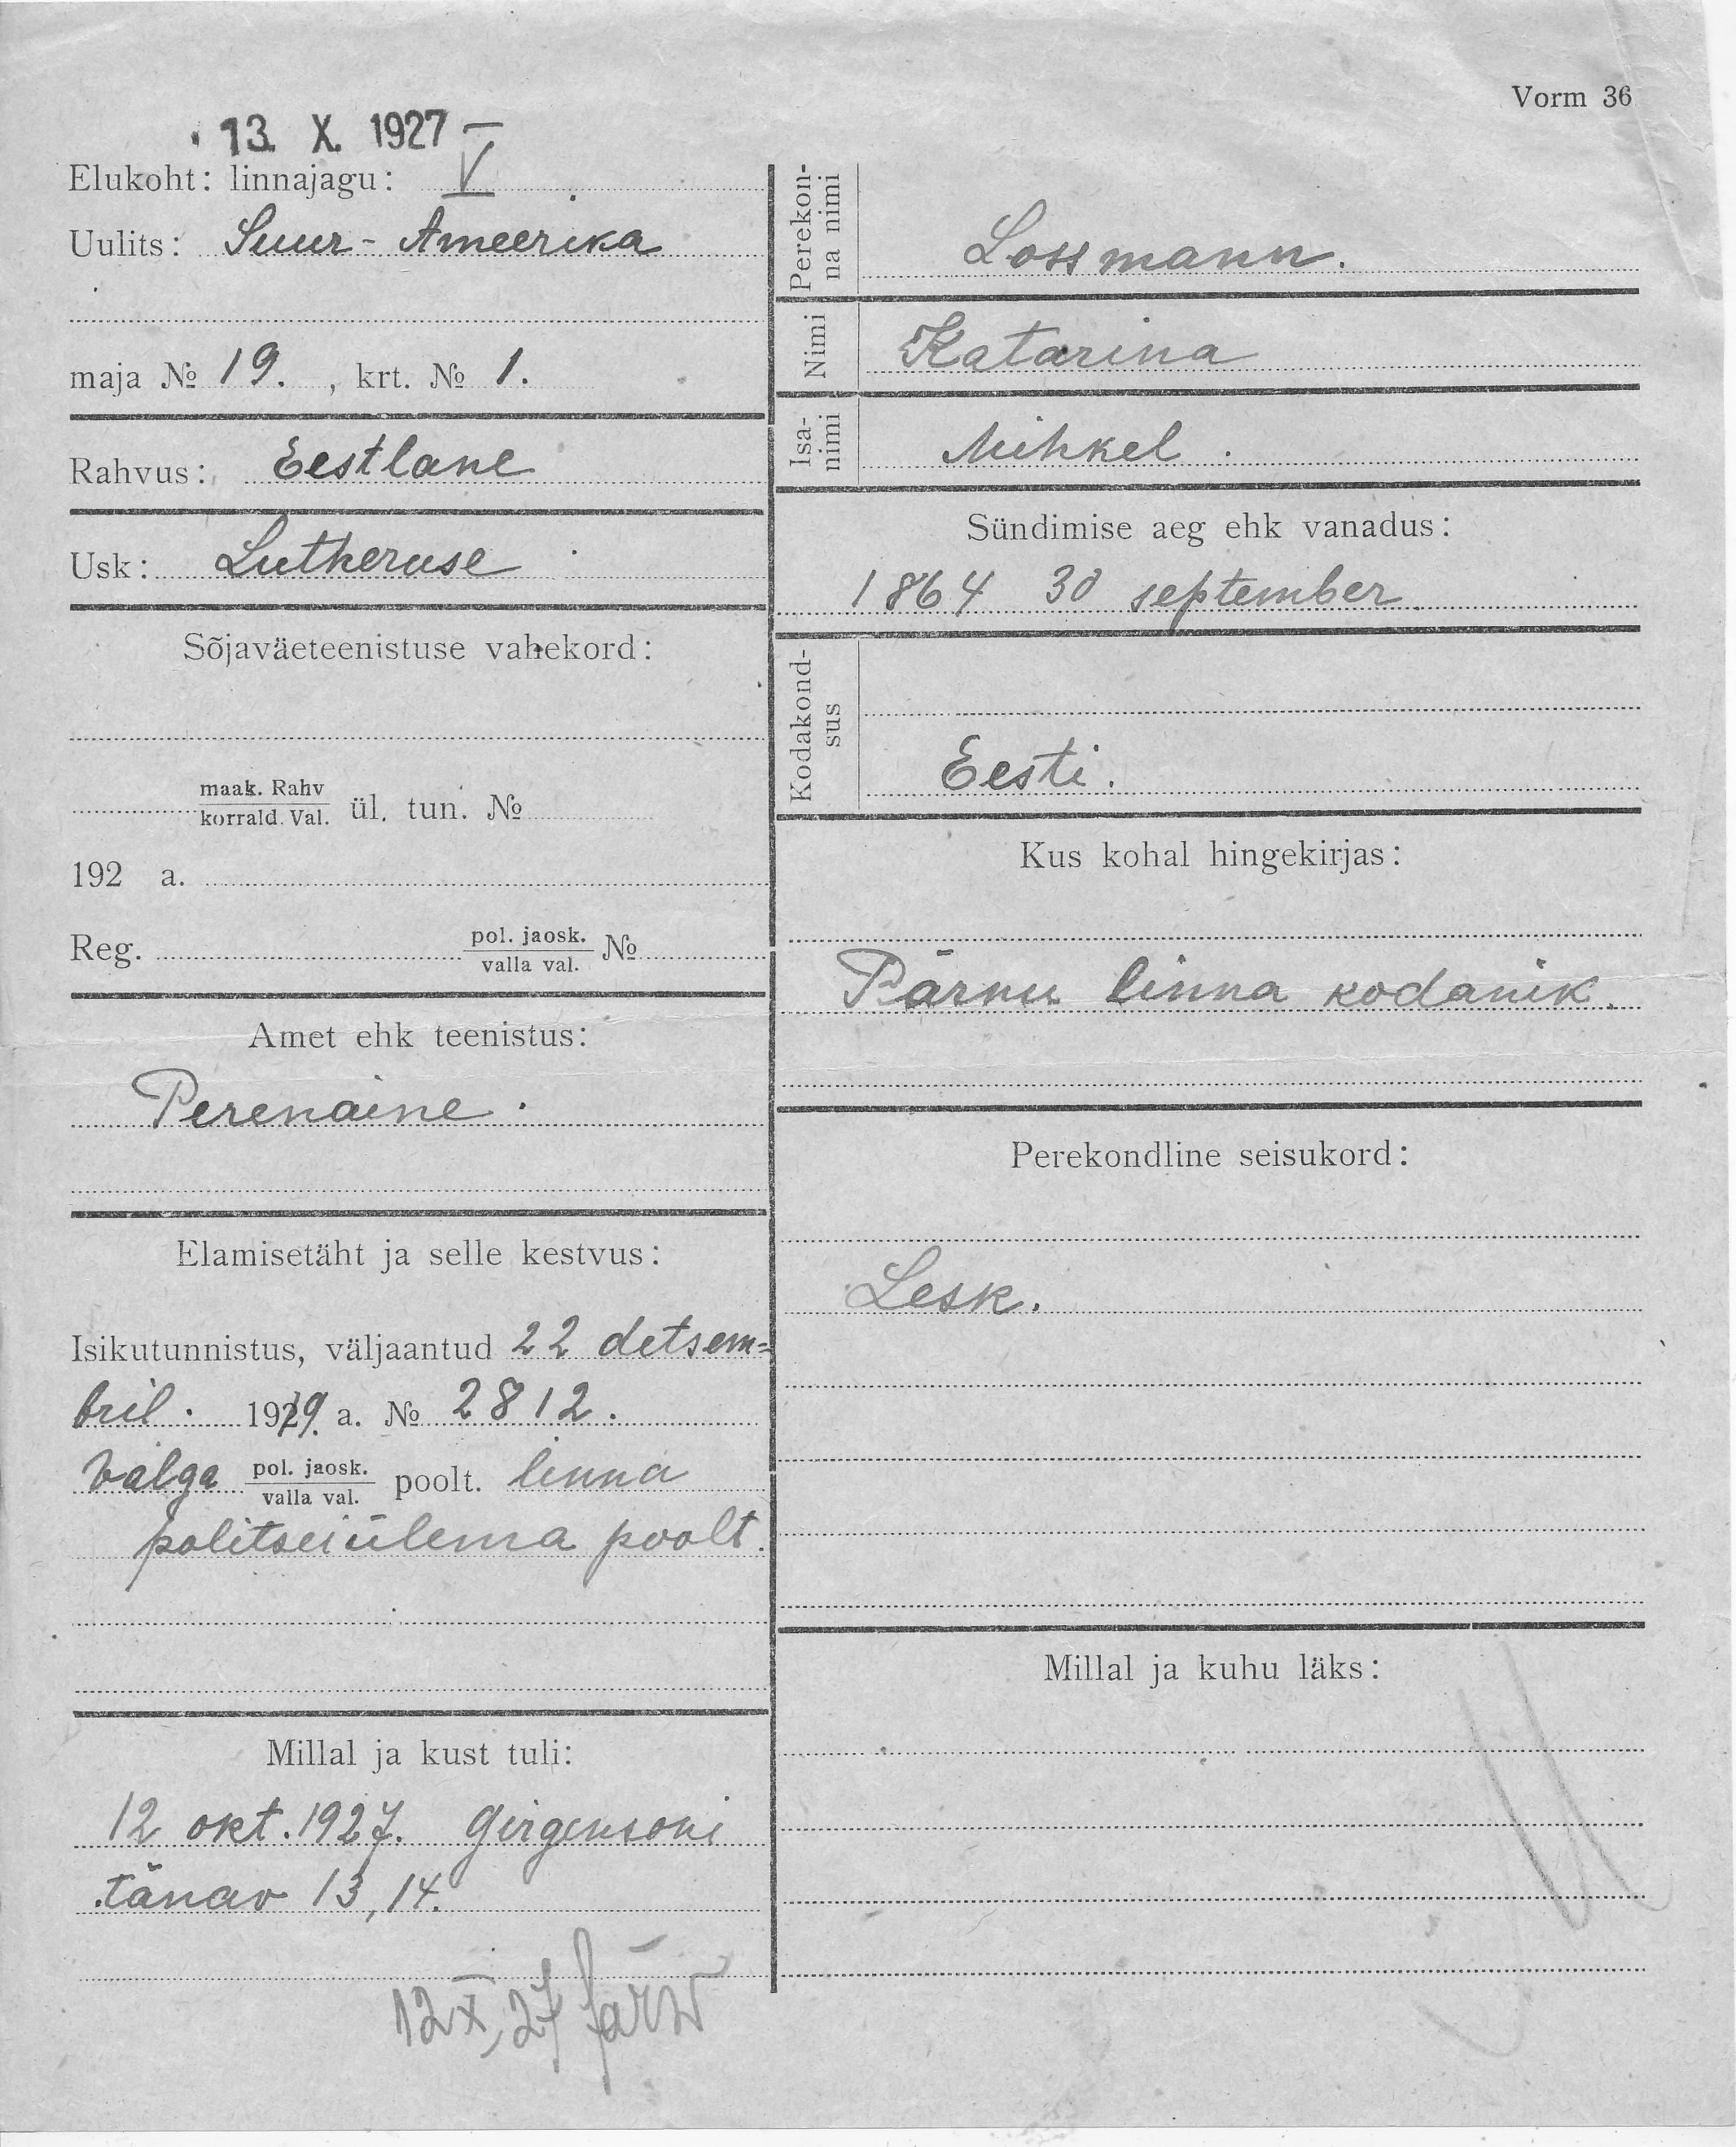 Vorm 36
13. X. 1927
Elukoht: linnajagu: V
Uulits: Suur-Ameerika
maja № 19. , krt. № 1.
Rahvus: Eestlane
Usk: Lutheruse
Sõjaväeteenistuse vahekord:
maak. Rahv
korrald. Val. ül. tun. №
192 a.
Reg. pol. jaosk. №
valla val.
Amet ehk teenistus:
Perenaine.
Elamisetäht ja selle kestvus:
Isikutunnistus, väljaantud 22 detsem=
bril. 1919. a. № 2812.
Valga pol. jaosk. poolt. linna
valla val.
politseiülema poolt.
Millal ja kust tuli:
12 okt. 1927. Girgensoni
tänav 13, 14.
12 X, 27
Perekon-
na nimi
Lossmann.
Nimi Katarina
Isa-
nimi
Mihkel.
Sündimise aeg ehk vanadus:
1864 30 september
Kodakond-
sus
Eesti.
Kus kohal hingekirjas:
Pärnu linna kodanik.
Perekondline seisukord:
Lesk.
Millal ja kuhu läks: